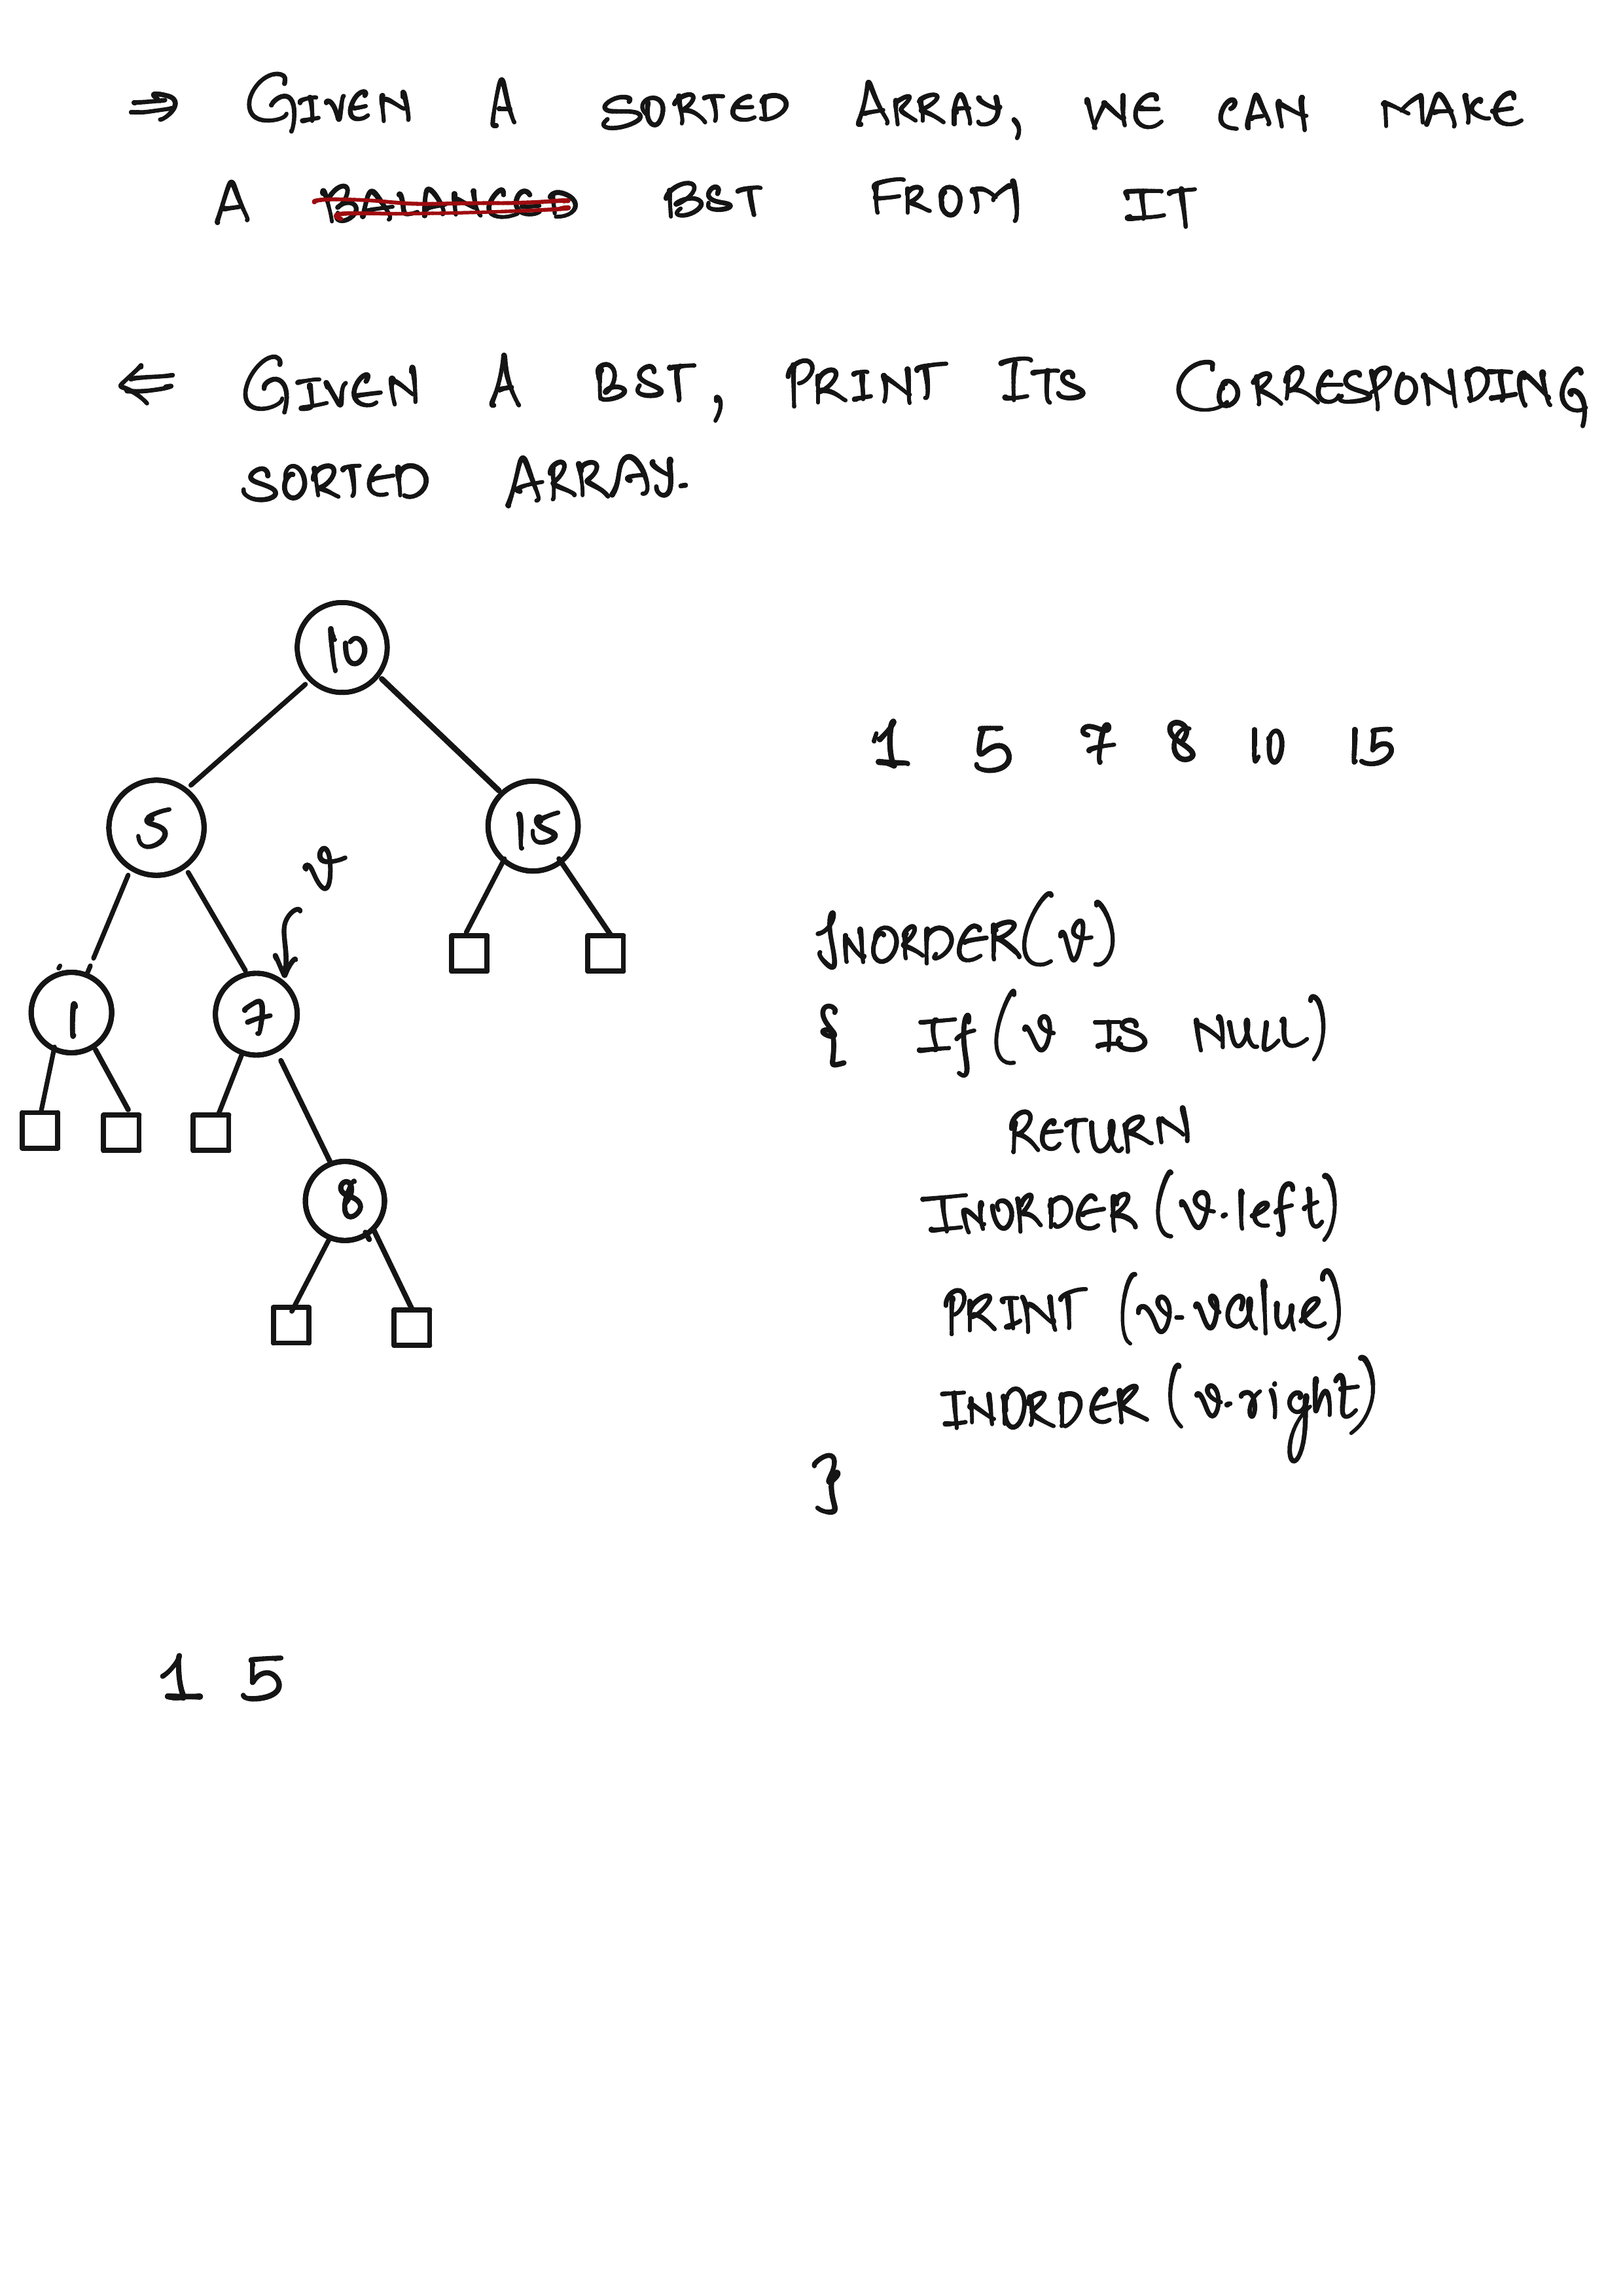 ⇒ GIVEN A SORTED ARRAY, WE CAN MAKE
A BALANCED BST FROM IT
⇐ GIVEN A BST, PRINT ITS CORRESPONDING
SORTED ARRAY.
10
5 15
v
1 7
8
1 5 7 8 10 15
INORDER(v)
{ If (v IS NULL)
RETURN
INORDER (v.left)
PRINT (v.value)
INORDER (v.right)
}
1 5